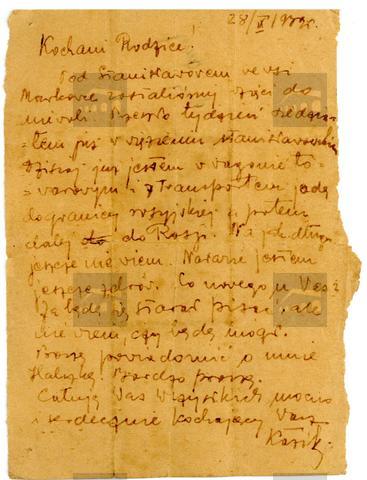 28/X 1939r.
Kochani Rodzice!
Pod Stanisławowem we wsi
zostaliśmy wzięci do
niewoli. tydzień siedzia-
-łem już w więzieniu stanisławowskim
Dzisiaj już jestem w wagonie to-
warowym i z transportem jadę
do granicy rosyjskiej a potem
dalej do Rosji. jak długo
jeszcze nie wiem. Narazie jestem
jeszcze zdrów. Co nowego u Was?
Ja będę się starał pisać, ale
nie wiem, czy będę mógł.
Proszę powiadomić o mnie
Bardzo proszę.
Całuję Was wszystkich mocno
i serdecznie kochający Was
Kazik